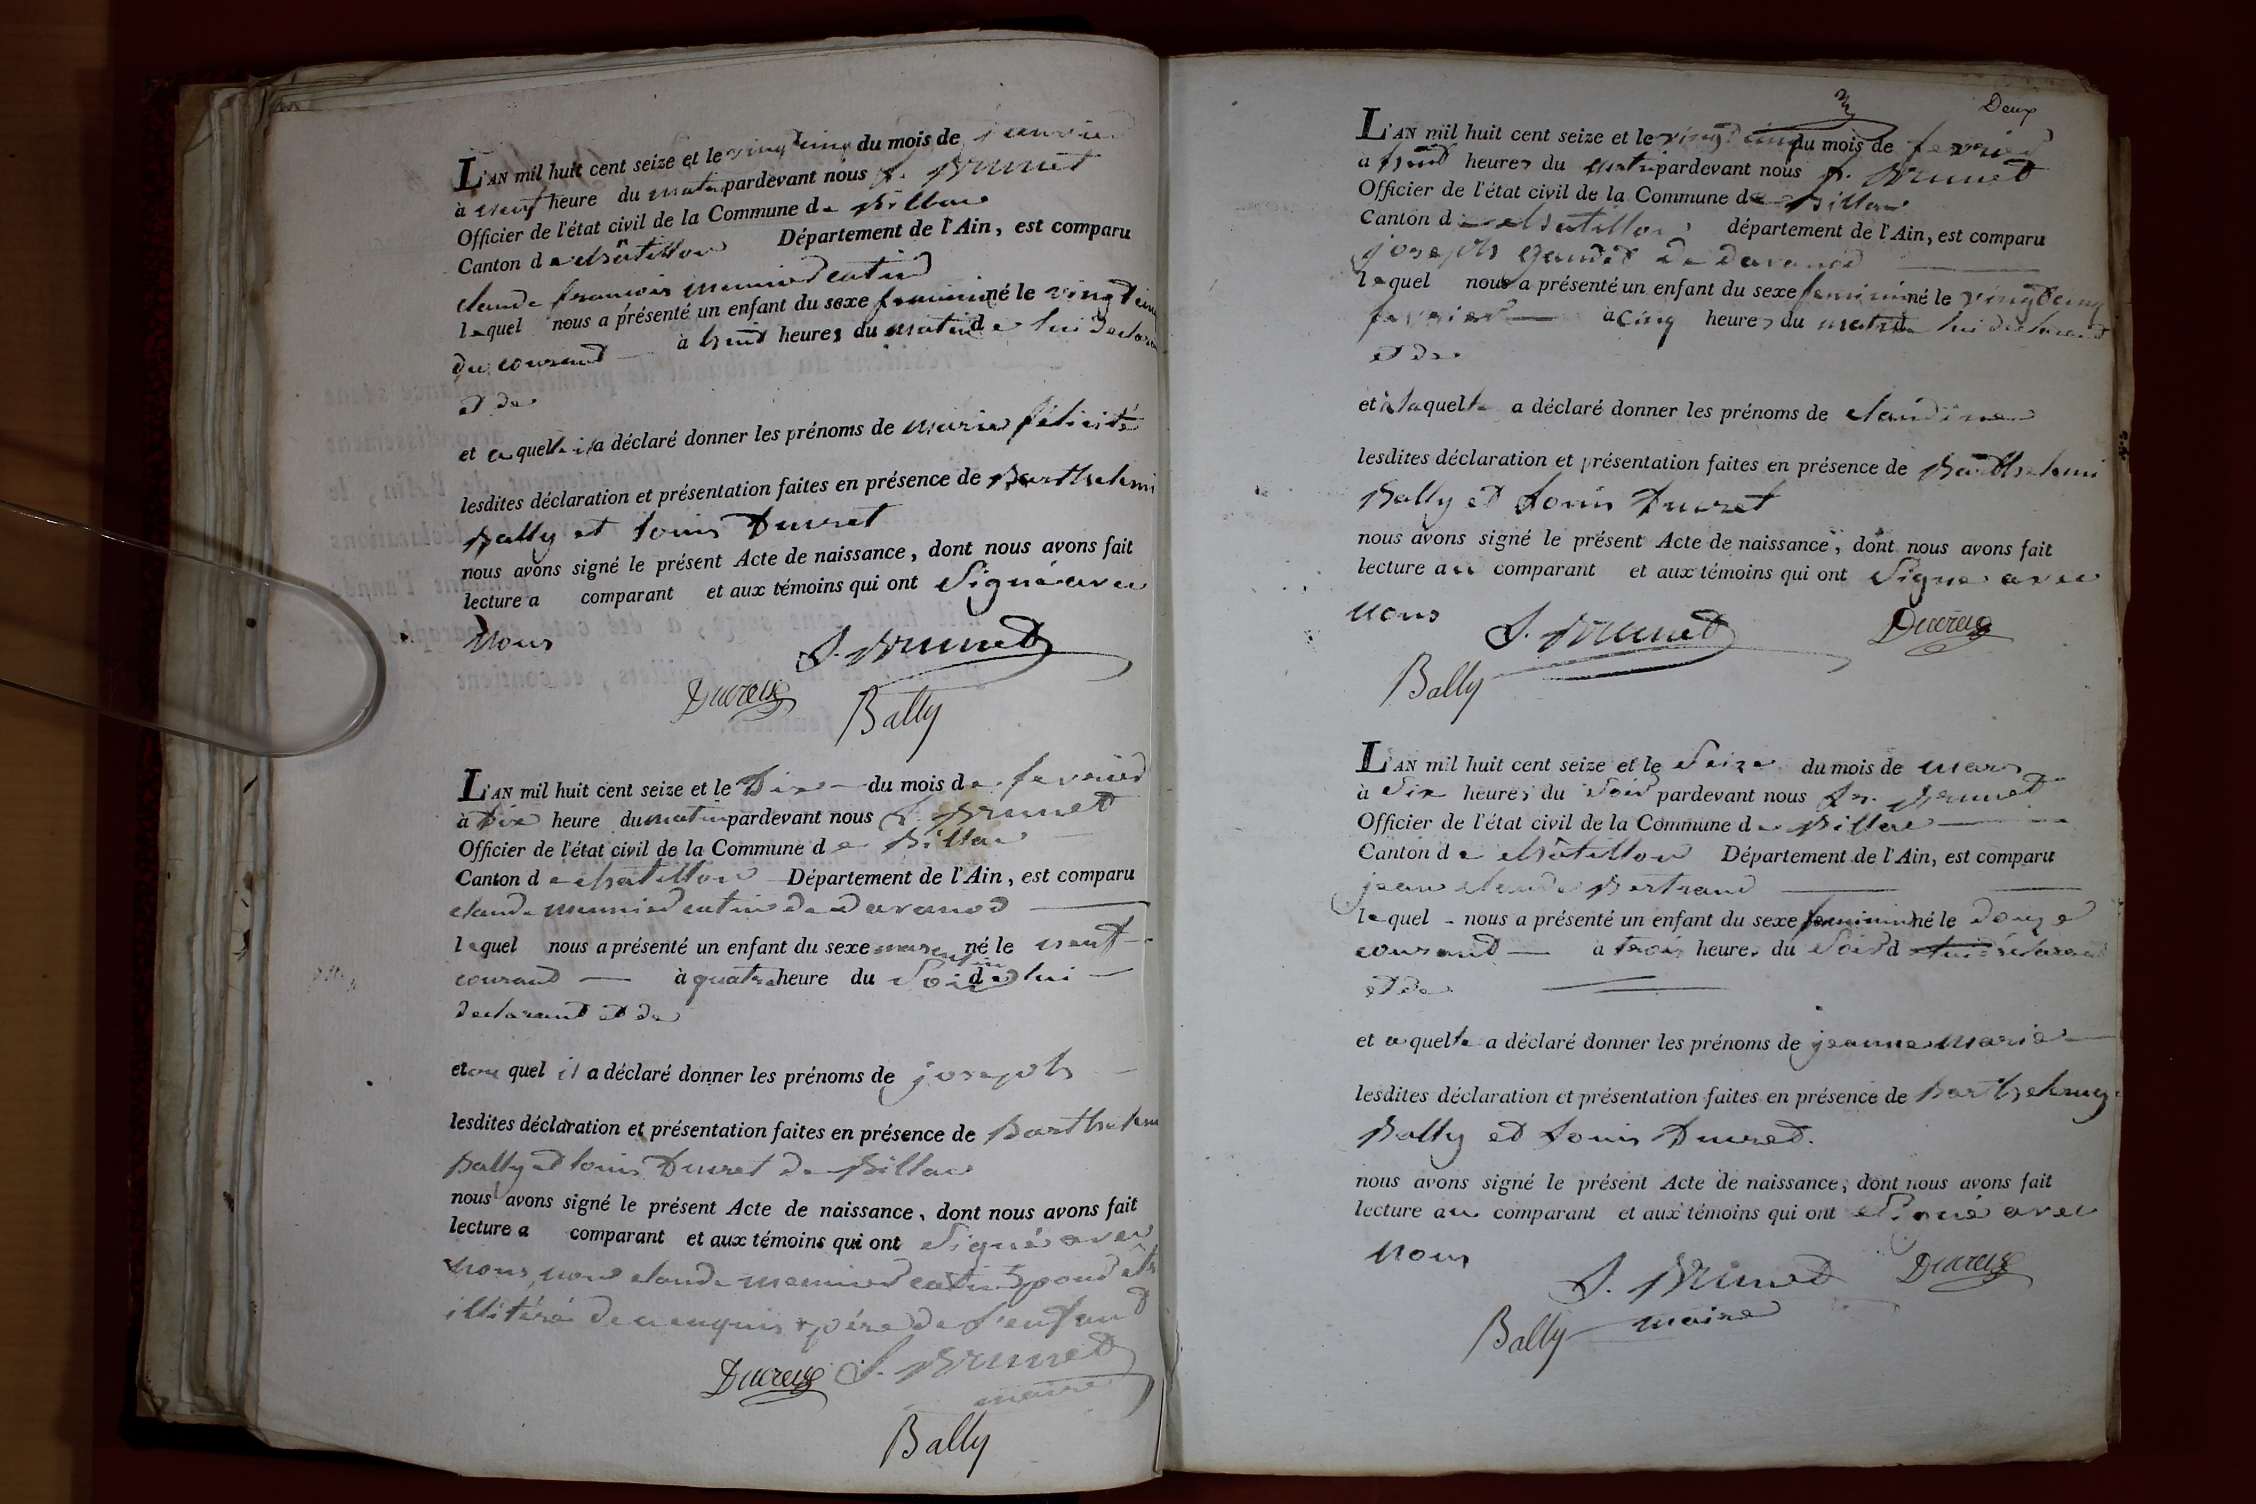 L'AN mil huit cent seize et le vingt cinq du mois de janvier
à neuf heure du matin pardevant nous f. Brunet
Officier de l'état civil de la Commune de Billac
Canton de chatillon Département de l'Ain, est comparu
claude francois
lequel nous a présenté un enfant du sexe feminin né le vingt cinq
du courant à huit heures du matin de lui declarant
et de
et a quelle il a déclaré donner les prénoms de marie félicité
lesdites déclaration et présentation faites en présence de Barthelemi
Bally et louis Ducret
nous avons signé le présent Acte de naissance, dont nous avons fait
lecture a comparant et aux témoins qui ont Signé avec
Nous f. Brunet
Ducreux Bally
L'AN mil huit cent seize et le Dix du mois de fevrier
à Dix heure du matin pardevant nous f. Brunet
Officier de l'état civil de la Commune de Billac
Canton de chatillon Département de l'Ain, est comparu
claude de
lequel nous a présenté un enfant du sexe masculin né le neuf
courant à quatre heure du Soir de lui
declarant et de
et au quel il a déclaré donner les prénoms de joseph
lesdites déclaration et présentation faites en présence de Barthelemi
Bally et louis Ducret de Billac
nous avons signé le présent Acte de naissance, dont nous avons fait
lecture a comparant et aux témoins qui ont Signé avec
Nous, non claude pour etre
illitéré de ce enquis père de l'enfant
Ducreux f. Brunet
maire
Bally
Deux
L'AN mil huit cent seize et le vingt cinq du mois de fevrier
a huit heures du matin pardevant nous f. Brunet
Officier de l'état civil de la Commune de Billac
Canton de chatillon département de l'Ain, est comparu
joseph de
lequel nous a présenté un enfant du sexe feminin né le vingt cinq
fevrier à cinq heures du matin de lui declarant
et de
et à laquelle a déclaré donner les prénoms de claudine
lesdites déclaration et présentation faites en présence de Barthelemi
Bally et louis Ducret
nous avons signé le présent Acte de naissance, dont nous avons fait
lecture au comparant et aux témoins qui ont Signé avec
nous f. Brunet Ducreux
Bally
L'AN mil huit cent seize et le Seize du mois de mars
à Six heures du Soir pardevant nous fr. Brunet
Officier de l'état civil de la Commune de Billac
Canton de chatillon Département de l'Ain, est comparu
jean claude Bertrand
lequel nous a présenté un enfant du sexe feminin né le douze
courant à trois heures du Soir de lui declarant
et de
et a quelle a déclaré donner les prénoms de jeanne marie
lesdites déclaration et présentation faites en présence de Barthelemy
Bally et louis Ducret.
nous avons signé le présent Acte de naissance, dont nous avons fait
lecture au comparant et aux témoins qui ont Signé avec
Nous f. Brunet Ducreux
Bally maire